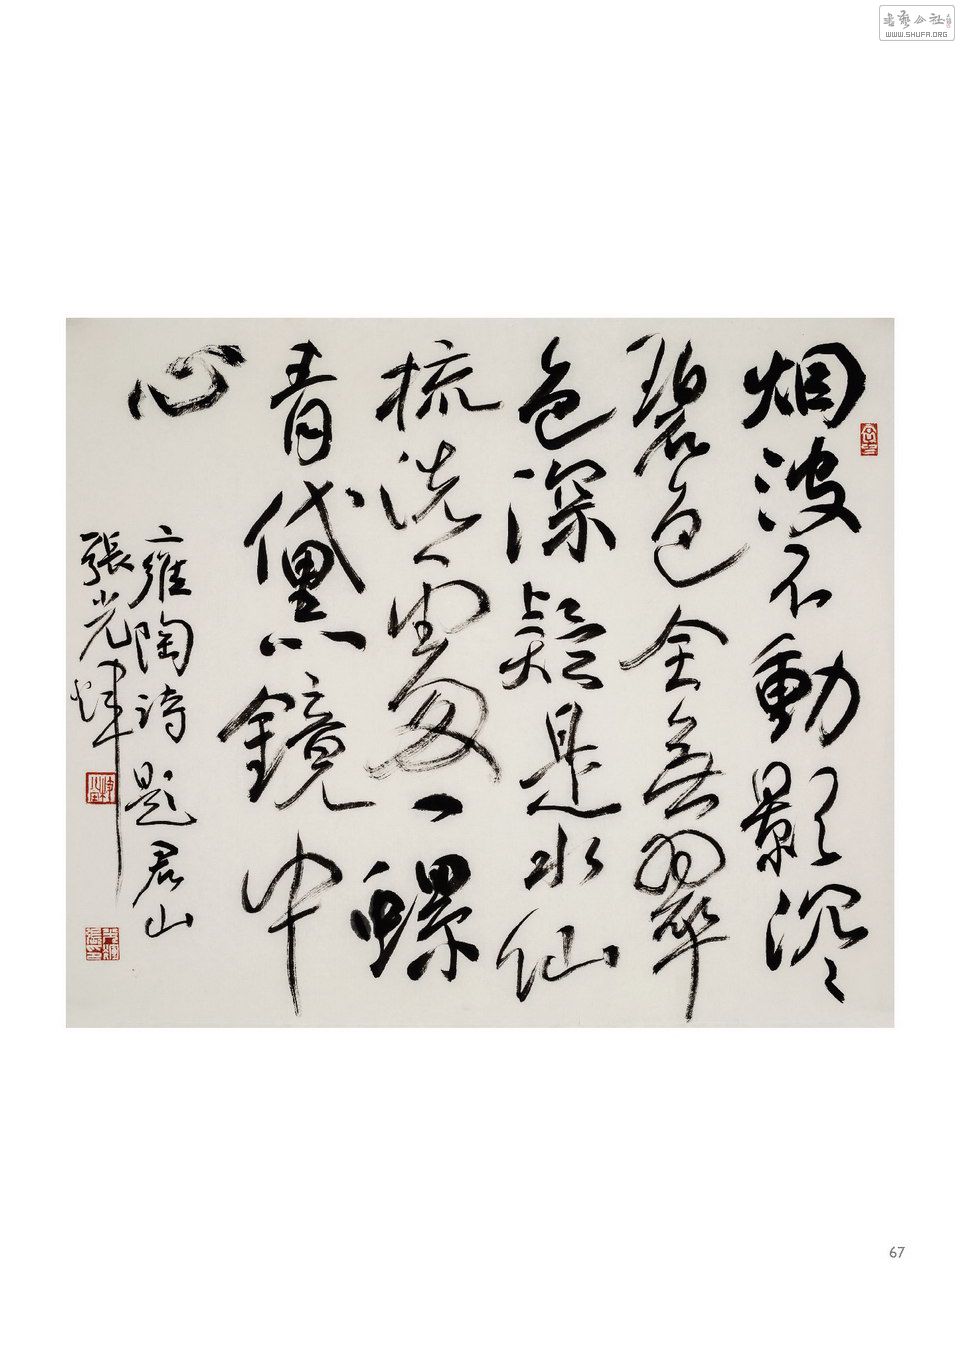 書藝公社
WWW.SHUFA.ORG
烟波不動影沉々
碧色全無翠
色深疑是水仙
梳洗處一螺
青黛鏡中
心
雍陶詩題君山
張光
67